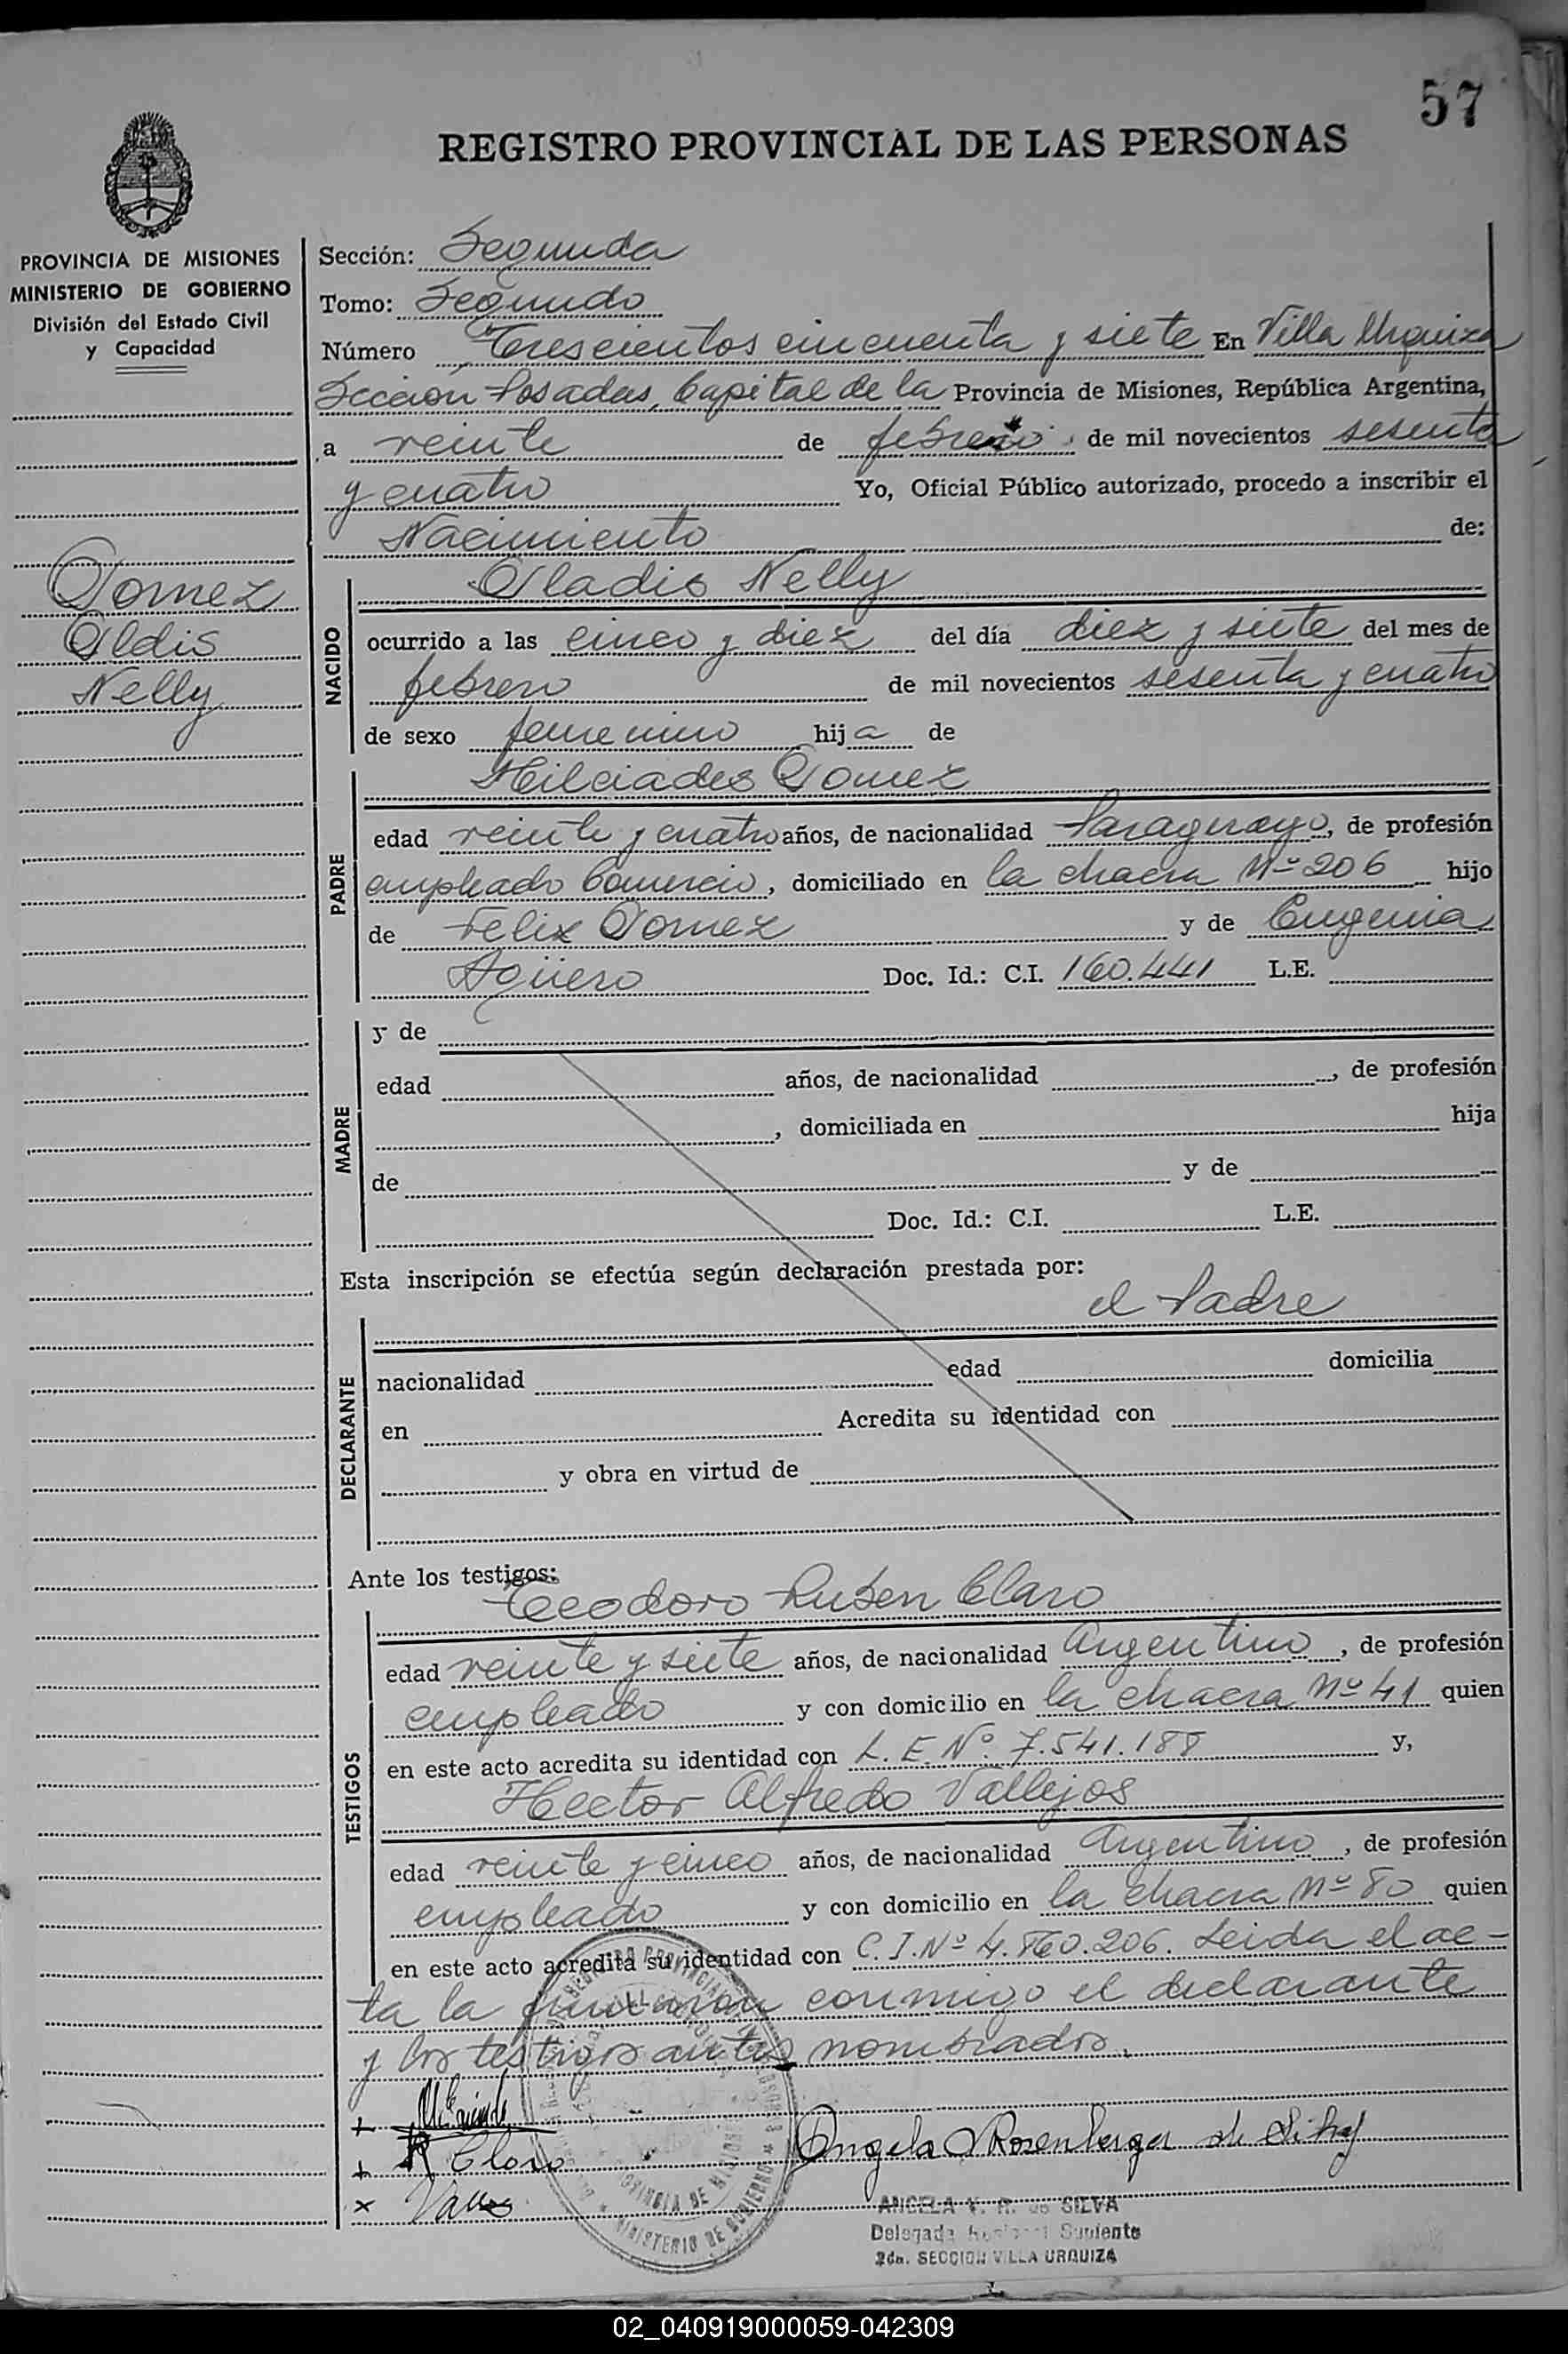 57
REGISTRO PROVINCIAL DE LAS PERSONAS
PROVINCIA DE MISIONES
MINISTERIO DE GOBIERNO
División del Estado Civil
y Capacidad
Gomez
Gldis
Nelly
Sección: Segunda
Tomo: Segundo
Número Trescientos cincuenta y siete En Villa Urquiza
Sección Posadas, Capital de la Provincia de Misiones, República Argentina,
a veinte de febrero de mil novecientos sesenta
y cuatro Yo, Oficial Público autorizado, procedo a inscribir el
Nacimiento de:
NACIDO
Gladis Nelly
ocurrido a las cinco y diez del día diez y siete del mes de
febrero de mil novecientos sesenta y cuatro
de sexo femenino hija de
PADRE
Milciades Gomez
edad veinte y cuatro años, de nacionalidad Paraguayo, de profesión
empleado Comercio, domiciliado en la chacra Nº 206 hijo
de Felix Gomez y de Eugenia
Agüero Doc. Id.: C.I. 160.441 L.E.
MADRE
y de
edad años, de nacionalidad , de profesión
, domiciliada en hija
de y de
Doc. Id.: C.I. L.E.
Esta inscripción se efectúa según declaración prestada por:
el Padre
DECLARANTE
nacionalidad edad domicilia
en Acredita su identidad con
y obra en virtud de
Ante los testigos:
TESTIGOS
Teodoro Ruben Claro
edad veinte y siete años, de nacionalidad Argentino, de profesión
empleado y con domicilio en la chacra Nº 41 quien
en este acto acredita su identidad con L. E. Nº. 7.541.188 y,
Hector Alfredo Vallejos
edad veinte y cinco años, de nacionalidad Argentino, de profesión
empleado y con domicilio en la chacra Nº 80 quien
en este acto acredita su identidad con C. I. Nº 4.860.206. Leida el ac-
ta la firmaron conmigo el declarante
y los testigos antes nombrados.
+
+ R Claro Angela V Rosenberger de Silva
x
ANGELA V. R. de SILVA
Delegada Suplente
2da. SECCION VILLA URQUIZA
PROVINCIA DE MISIONES
MINISTERIO DE GOBIERNO
02_040919000059-042309